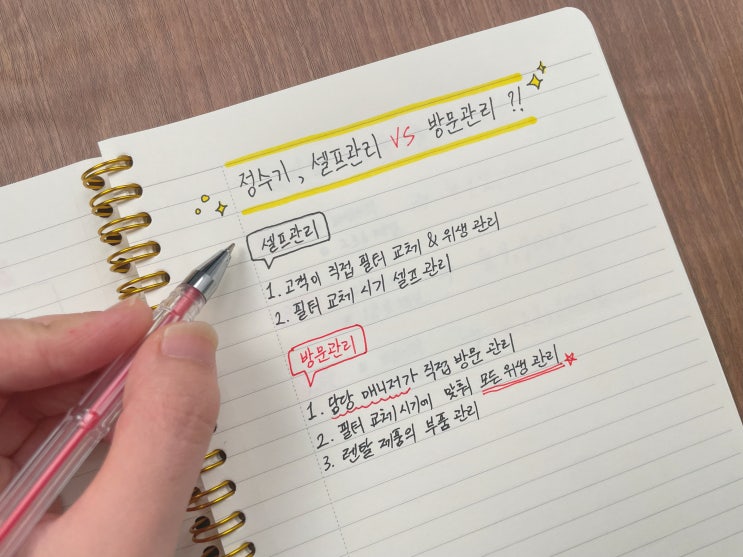 정수기, 셀프관리 VS 방문관리 ?!
셀프관리
1. 고객이 직접 필터 교체 & 위생 관리
2. 필터 교체 시기 셀프 관리
방문관리
1. 담당 매니저가 직접 방문 관리
2. 필터 교체시기에 맞춰 모든 위생 관리
3. 렌탈 제품의 부품 관리